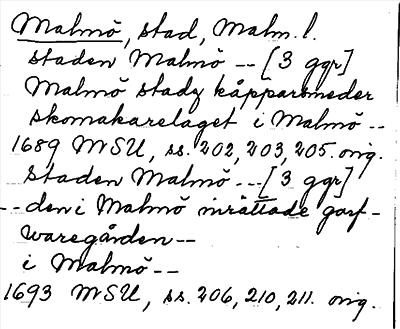 Malmö, stad, Malm. l.
staden Malmö -- [3 ggr]
Malmö stadz kåpparsmeder
skomakarelaget i Malmö --
1689 MSU, ss. 202, 203, 205. orig.
staden Malmö --- [3 ggr]
-- den i Malmö inrättade garf-
waregården --
i Malmö --
1693 MSU, ss. 206, 210, 211. orig.